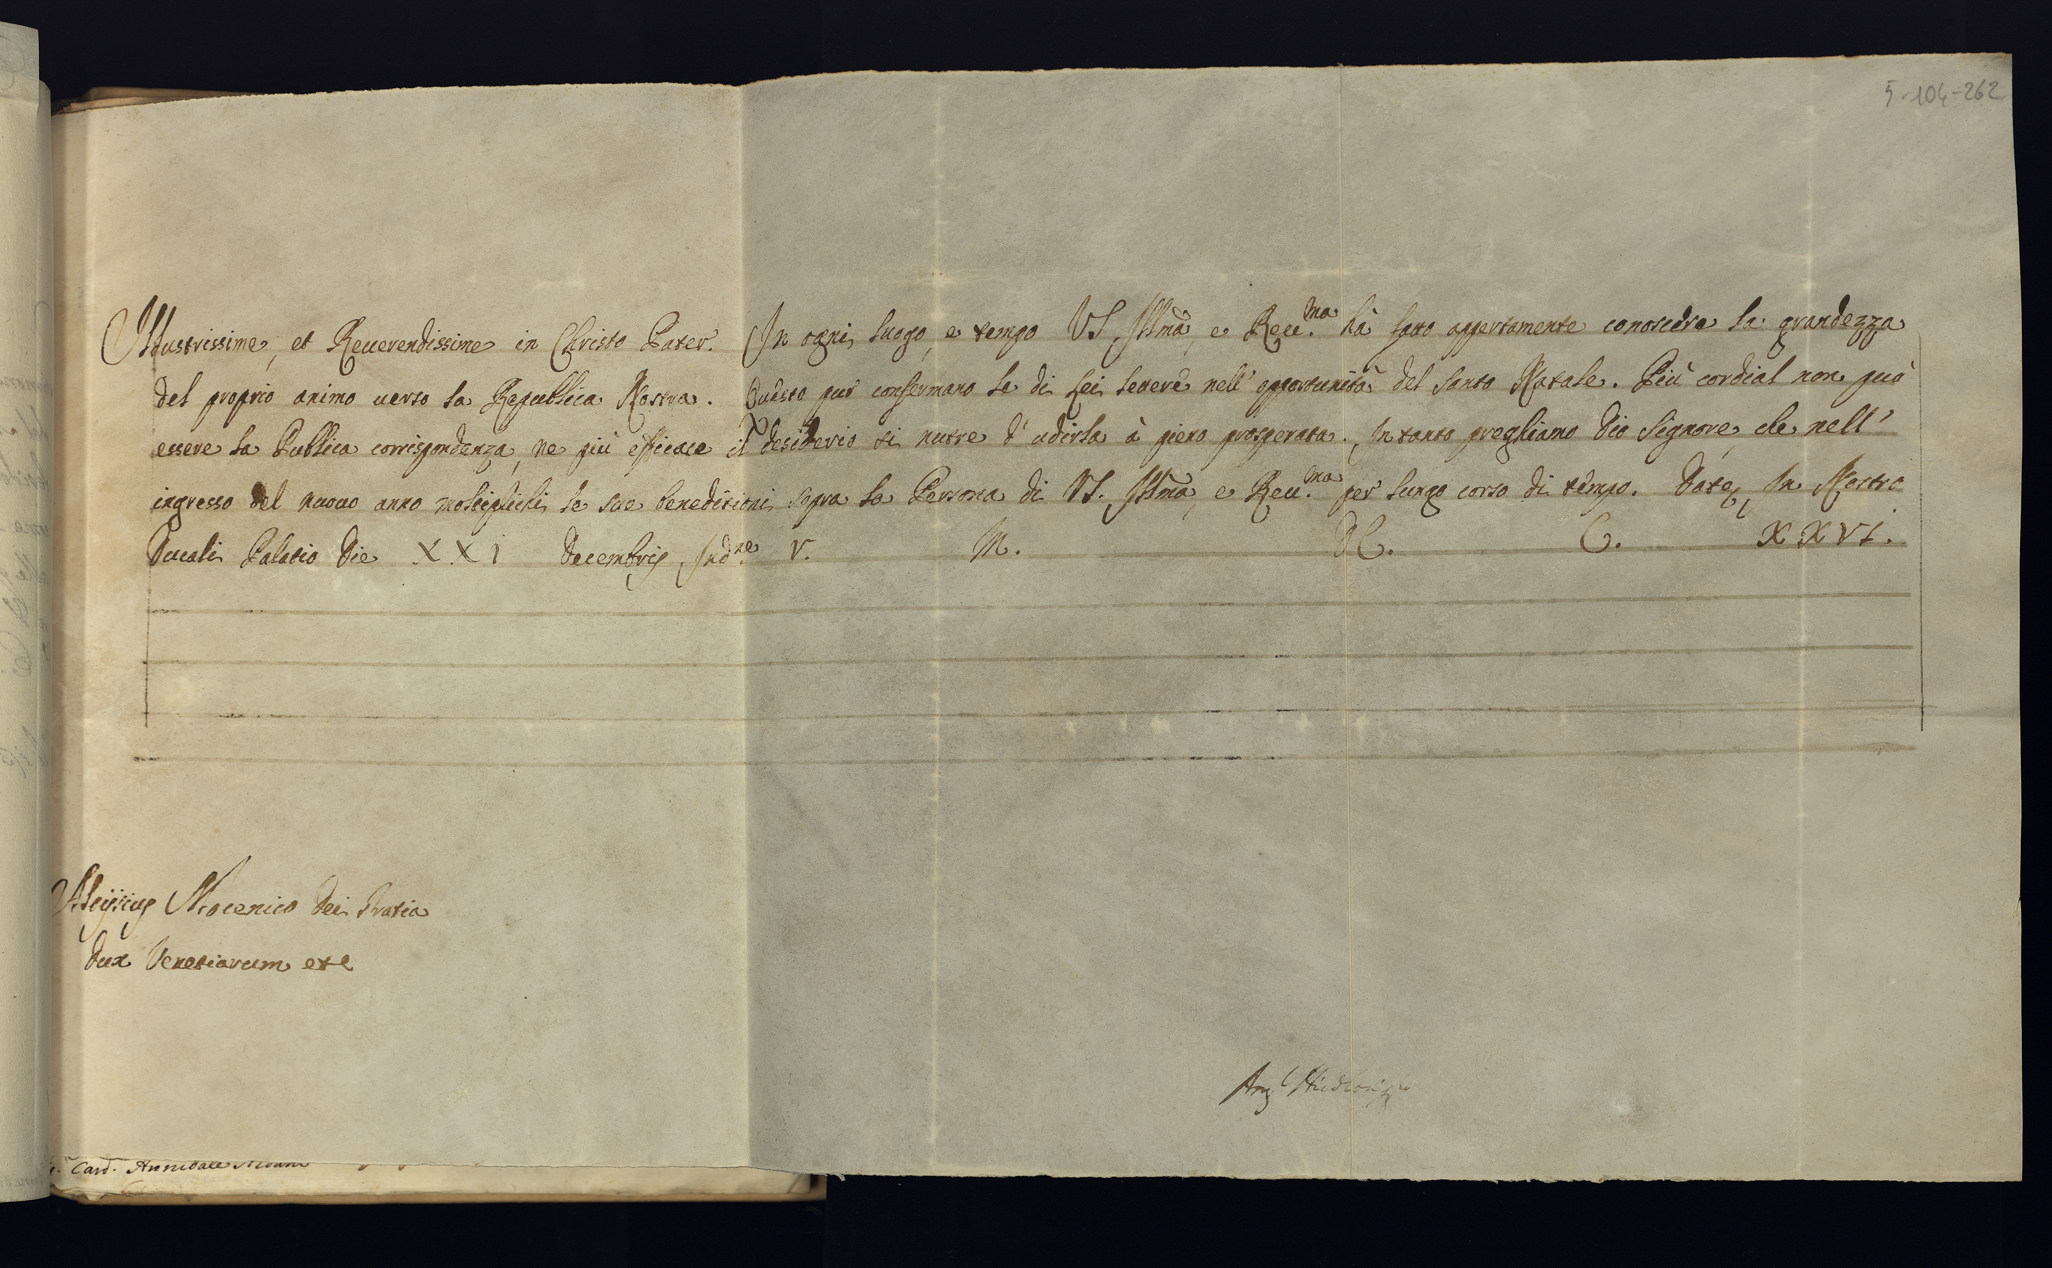 5-104-262
Illustrissime, et Reuerendissime in Christo Pater. In ogni luogo, e tempo VS. Illma, e Reu.ma hà fatto appertamente conoscere la grandezza
del proprio animo uerso la Republica Nostra. Questo pur confermano le di Lei lettere nell' opportunità del Santo Natale. Più cordial non può
essere la Publica corrispondenza, ne più efficace il desiderio si nutre d' udirla à pieno prosperata. In tanto preghiamo Dio Signore, che nell'
ingresso del nuouo anno moltiplichi le sue beneditioni sopra la Persona di VS. Illma, e Reu.ma per lungo corso di tempo. Datę In Nostro
Ducali Palatio Die XXI Decembris, Ind.ne V. M. DC. C. XXVI.
Aloysius Mocenico Dei Gratia
Dux Venetiarum etc
Card. Annibale Albani